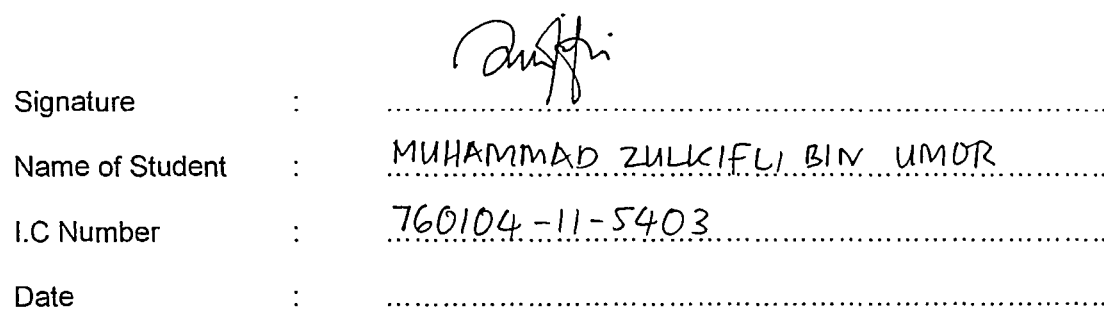 Signature : ................................................
Name of Student : MUHAMMAD ZULKIFLI BIN UMOR
I.C Number : 760104-11-5403
Date : ................................................